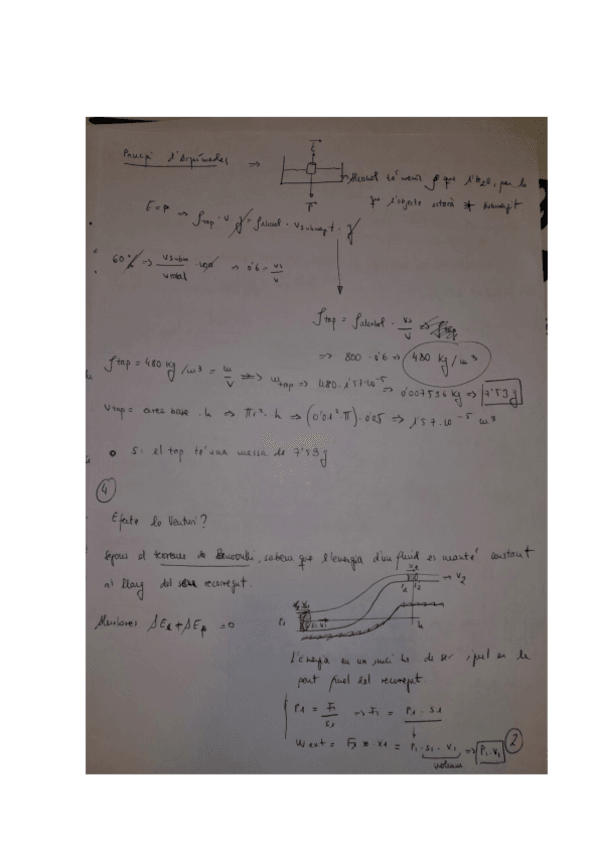 Principi d'Arquímedes ⇒
E
Alcohol té menys ρ que l'H2O, per lo
P
que l'objecte estarà + submergit
E = P ⇒ ρtap · v · g = ρalcohol · v submergit · g
60% ⇒ v subm / v total · 100 ⇒ 0'6 = vs / v
ρtap = ρalcohol · vs / v ⇒ ρtap
⇒ 800 · 0'6 ⇒ 480 kg/m3
ρtap = 480 kg/m3 = m / v ⇒ m tap ⇒ 480 · 1'57·10^-5 ⇒ 0'007536 kg ⇒ 7'53 g
Vtap = àrea base · h ⇒ πr² · h ⇒ (0'01² · π) · 0'05 ⇒ 1'57·10^-5 m3
Si el tap té una massa de 7'53 g
4
Efecte de Venturi?
Segons el teorema de Bernoulli, sabem que l'energia d'un fluid es manté constant
al llarg del seu recorregut.
→ v2
P1
Aleshores ΔEc + ΔEp = 0
L'energia en un inici ha de ser igual en la
part final del recorregut.
P1 = F1 / s1 ⇒ F1 = P1 · s1
W ext = F1 · x1 = P1 · s1 · x1 ⇒ P1 · V1
volum
2